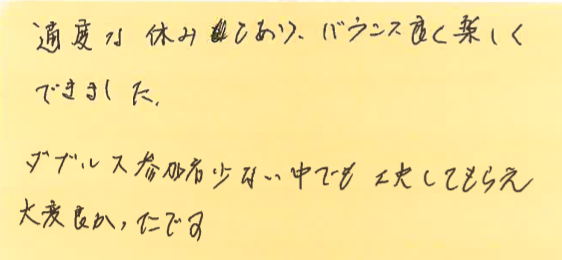 適度な休みもあり、バランス良く楽しく
できました。
ダブルス参加者少ない中でも工夫してもらえ
大変良かったです